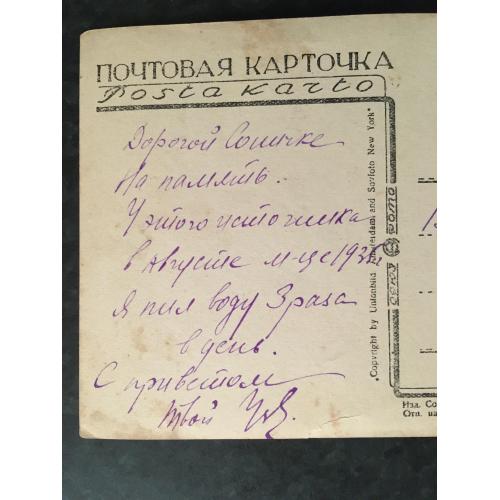 ПОЧТОВАЯ КАРТОЧКА
Poŝta Karto
Дорогой Сонечке
На память.
У этого источника
в августе м-це 1935г
Я пил воду 3 раза
в день.
С приветом
твой
"Copyright by Unionbild Amsterdam and Sovfoto New York"
Изд. Со
Отп. на